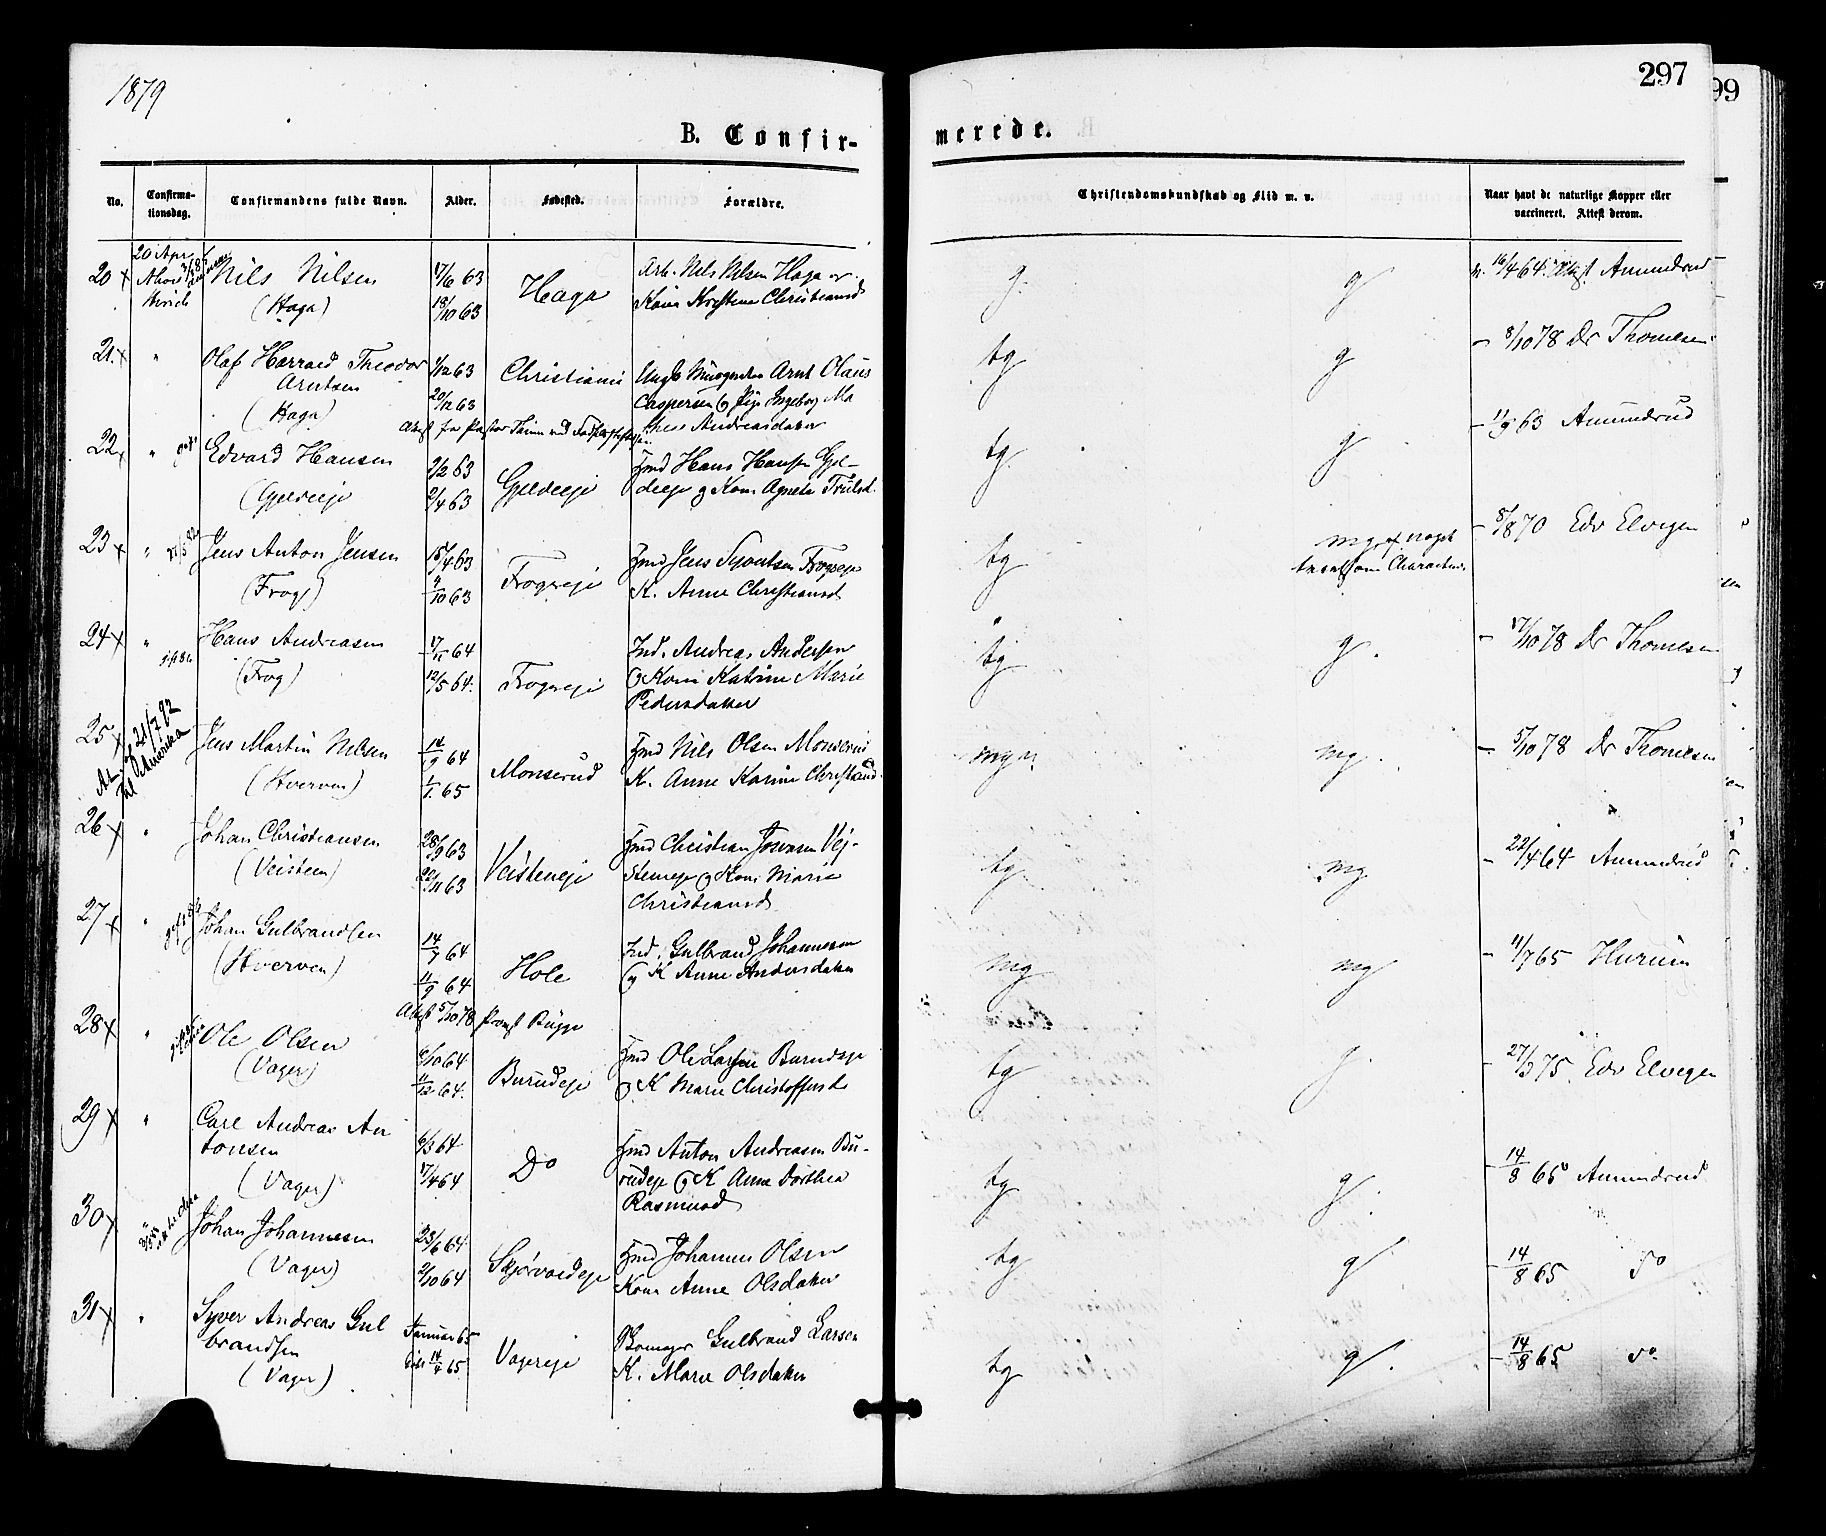 1879
297
99
B. Confir-
merede.
No.
Confirma-
tionsdag.
Confirmandens fulde Navn.
Alder.
Fødested.
Forældre.
Christendomskundskab og Flid m. v.
Naar havt de naturlige Kopper eller
vaccineret. Attest derom.
20 20 Apr. Nils Nilsen 17/6 63 Haga Arb. Nils Nilsen Haga og
(Haga) 18/10 63 Kone Kristine Christiansd
g. g 16/4 64. Amundrud
21. " Olaf Harrald Theodor 1/12 63 Christiania Ungk Arnt Olaus
Arntsen 20/12 63 Caspersen og Pige Ingeborg Ma
(Haga) Andreasdatter
tg g - 8/10 78 Dr Thomesen
22 " Edvard Hansen 2/2 63 Gjeldeeje Hmd Hans Hansen Gjel-
(Gjeldeeje 2/4 63 deeje og Kone Agnete Trulsd.
tg. g - 11/9 63 Amundrud
23 " Jens Anton Jensen 15/4 63 Frogeeje Hmd Jens
(Frog) 4/10 63 K. Anne Christiansd
tg mg, noget
Character
- 8/8 70 Edv Elvegen
24 " Hans Andreasen 17/ 64 Frogeeje Ind. Andreas Andersen
(Frog) 12/5 64. og Kone Katrine Marie
Pedersdatter
tg. g. - 17/10 78 Dr Thomesen
25 21/7 92
til Amerika
Jens Martin Nilsen 14/9 64 Monserud Hmd Nils Olsen Monserud
(Hverven) 1/1 65 K. Anne Karine Christiansd.
mg. - 5/10 78 Dr Thomesen
26 " Johan Christiansen 28/9 63 Veisteneje Hmd Christian Vej-
(Veisteen) 22/11 63 steneje og Kone Marie
Christiansd
tg mg - 22/4 64 Amundrud
27 " Johan Gulbrandsen 14/7 64 Hole Ind. Gulbrand Johannesen
(Hverven) 11/9 64 og K Anne Andersdatter
Attest 5/10 78 Provst Bugge
mg mg - 11/7 65 Hurum
28 " Ole Olsen 6/10 64 Burudeje Hmd Ole Larsen Burudeje
(Vager) 11/12 64. og K Marie Christoffersd
tg g. - 27/3 75. Edv Elvegen
29 " Carl Andreas An
tonsen 6/3 64 Do Hmd Anton Andreasen Bu-
(Vager) 17/4 64 rudeje og K Anne Dorthea
Rasmusd
tg g. - 14/8 65 Amundrud
30 " Johan Johannesen 23/6 64. Skjørvoldeje Hmd Johannes Olsen
(Vager) 2/10 64 Kone Anne Olsdatter
tg g - 14/8 65 do
31 " Syver Andreas Gul
brandsen Januar 65 Vagereje Gulbrand Larsen
(Vager) 14/4 65. K. Marie Olsdatter
tg g. - 14/8 65 do.